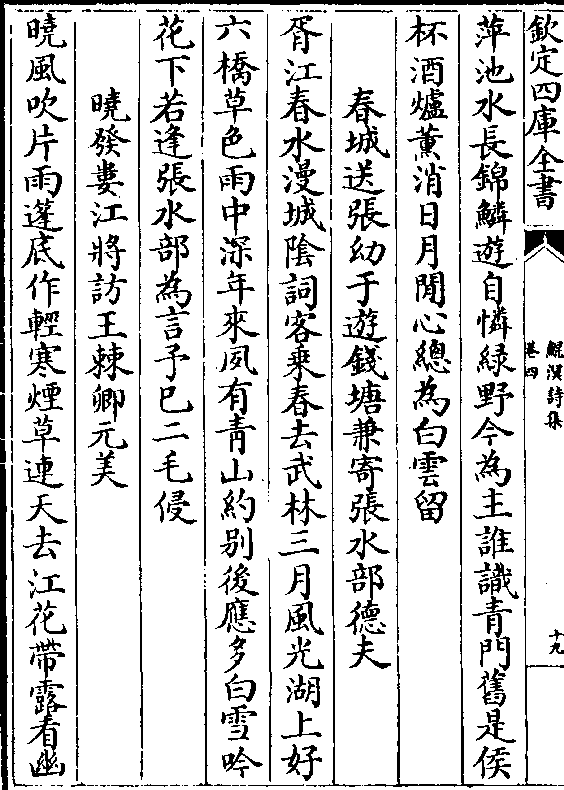 欽定四庫全書
鯤溟詩集
卷四
十九
萍池水長錦鱗遊自憐緑野今為主誰識青門舊是侯
杯酒爐薰消日月閒心總為白雲留
春城送張幼于遊錢塘兼寄張水部德夫
胥江春水漫城陰詞客乘春去武林三月風光湖上好
六橋草色雨中深年來夙有青山約别後應多白雪吟
花下若逢張水部為言予已二毛侵
曉發婁江將訪王棘卿元美
曉風吹片雨蓬底作輕寒煙草連天去江花帶露看幽